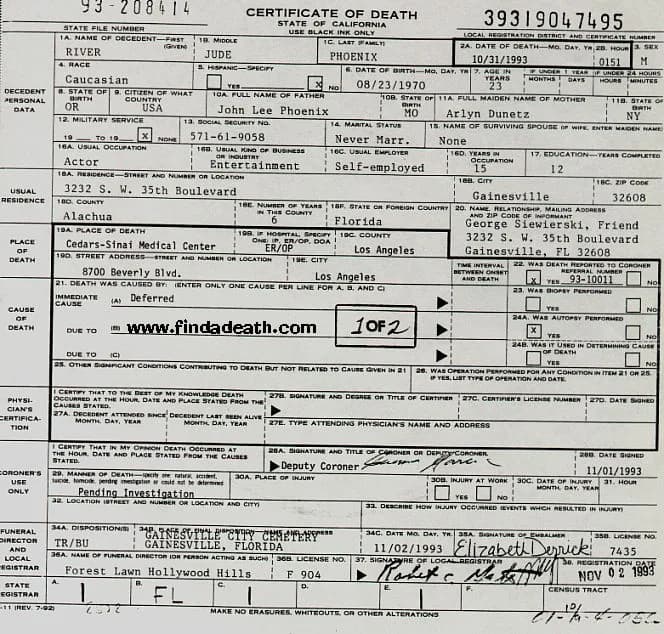 93-208414
CERTIFICATE OF DEATH
39319047495
STATE OF CALIFORNIA
STATE FILE NUMBER
USE BLACK INK ONLY
LOCAL REGISTRATION DISTRICT AND CERTIFICATE NUMBER
1A. NAME OF DECEDENT—FIRST (GIVEN) 1B. MIDDLE 1C. LAST (FAMILY) 2A. DATE OF DEATH—MO, DAY, YR 2B. HOUR 3. SEX
RIVER JUDE PHOENIX 10/31/1993 0151 M
4. RACE 5. HISPANIC—SPECIFY 6. DATE OF BIRTH—MO, DAY, YR 7. AGE IN YEARS IF UNDER 1 YEAR MONTHS DAYS IF UNDER 24 HOURS HOURS MINUTES
Caucasian YES X NO 08/23/1970 23
DECEDENT PERSONAL DATA
8. STATE OF BIRTH 9. CITIZEN OF WHAT COUNTRY 10A. FULL NAME OF FATHER 10B. STATE OF BIRTH 11A. FULL MAIDEN NAME OF MOTHER 11B. STATE OF BIRTH
OR USA John Lee Phoenix MO Arlyn Dunetz NY
12. MILITARY SERVICE 13. SOCIAL SECURITY NO. 14. MARITAL STATUS 15. NAME OF SURVIVING SPOUSE (IF WIFE, ENTER MAIDEN NAME)
19 TO 19 X NONE 571-61-9058 Never Marr. None
16A. USUAL OCCUPATION 16B. USUAL KIND OF BUSINESS OR INDUSTRY 16C. USUAL EMPLOYER 16D. YEARS IN OCCUPATION 17. EDUCATION—YEARS COMPLETED
Actor Entertainment Self-employed 15 12
USUAL RESIDENCE
18A. RESIDENCE—STREET AND NUMBER OR LOCATION 18B. CITY 18C. ZIP CODE
3232 S. W. 35th Boulevard Gainesville 32608
18D. COUNTY 18E. NUMBER OF YEARS IN THIS COUNTY 18F. STATE OR FOREIGN COUNTRY 20. NAME, RELATIONSHIP, MAILING ADDRESS AND ZIP CODE OF INFORMANT
Alachua 6 Florida
George Siewierski, Friend
3232 S. W. 35th Boulevard
Gainesville, FL 32608
PLACE OF DEATH
19A. PLACE OF DEATH 19B. IF HOSPITAL, SPECIFY ONE: IP, ER/OP, DOA 19C. COUNTY
Cedars-Sinai Medical Center ER/OP Los Angeles
19D. STREET ADDRESS—STREET AND NUMBER OR LOCATION 19E. CITY
8700 Beverly Blvd. Los Angeles
TIME INTERVAL BETWEEN ONSET AND DEATH
22. WAS DEATH REPORTED TO CORONER REFERRAL NUMBER
X YES 93-10011 NO
CAUSE OF DEATH
21. DEATH WAS CAUSED BY: (ENTER ONLY ONE CAUSE PER LINE FOR A, B, AND C)
IMMEDIATE CAUSE (A) Deferred
23. WAS BIOPSY PERFORMED
YES NO
DUE TO (B) www.findadeath.com 1 OF 2
24A. WAS AUTOPSY PERFORMED
X YES NO
DUE TO (C)
24B. WAS IT USED IN DETERMINING CAUSE OF DEATH
YES NO
25. OTHER SIGNIFICANT CONDITIONS CONTRIBUTING TO DEATH BUT NOT RELATED TO CAUSE GIVEN IN 21
26. WAS OPERATION PERFORMED FOR ANY CONDITION IN ITEM 21 OR 25? IF YES, LIST TYPE OF OPERATION AND DATE.
PHYSICIAN'S CERTIFICATION
I CERTIFY THAT TO THE BEST OF MY KNOWLEDGE DEATH OCCURRED AT THE HOUR, DATE AND PLACE STATED FROM THE CAUSES STATED.
27B. SIGNATURE AND DEGREE OR TITLE OF CERTIFIER 27C. CERTIFIER'S LICENSE NUMBER 27D. DATE SIGNED
27A. DECEDENT ATTENDED SINCE MONTH, DAY, YEAR DECEDENT LAST SEEN ALIVE MONTH, DAY, YEAR
27E. TYPE ATTENDING PHYSICIAN'S NAME AND ADDRESS
CORONER'S USE ONLY
I CERTIFY THAT IN MY OPINION DEATH OCCURRED AT THE HOUR, DATE AND PLACE STATED FROM THE CAUSES STATED.
28A. SIGNATURE AND TITLE OF CORONER OR DEPUTY CORONER 28B. DATE SIGNED
Deputy Coroner 11/01/1993
29. MANNER OF DEATH—specify one: natural, accident, suicide, homicide, pending investigation or could not be determined
30A. PLACE OF INJURY 30B. INJURY AT WORK 30C. DATE OF INJURY MONTH, DAY, YEAR 31. HOUR
Pending Investigation YES NO
32. LOCATION (STREET AND NUMBER OR LOCATION AND CITY)
33. DESCRIBE HOW INJURY OCCURRED (EVENTS WHICH RESULTED IN INJURY)
FUNERAL DIRECTOR AND LOCAL REGISTRAR
34A. DISPOSITION(S) 34B. PLACE OF FINAL DISPOSITION—NAME AND ADDRESS 34C. DATE MO, DAY, YR. 35A. SIGNATURE OF EMBALMER 35B. LICENSE NO.
TR/BU GAINESVILLE CITY CEMETERY
GAINESVILLE, FLORIDA 11/02/1993 Elizabeth Derrick 7435
36A. NAME OF FUNERAL DIRECTOR (OR PERSON ACTING AS SUCH) 36B. LICENSE NO. 37. SIGNATURE OF LOCAL REGISTRAR 38. REGISTRATION DATE
Forest Lawn Hollywood Hills F 904 NOV 02 1993
STATE REGISTRAR
A. B. C. D. E. F. CENSUS TRACT
1 FL 1 1
-11 (REV. 7-92)
MAKE NO ERASURES, WHITEOUTS, OR OTHER ALTERATIONS